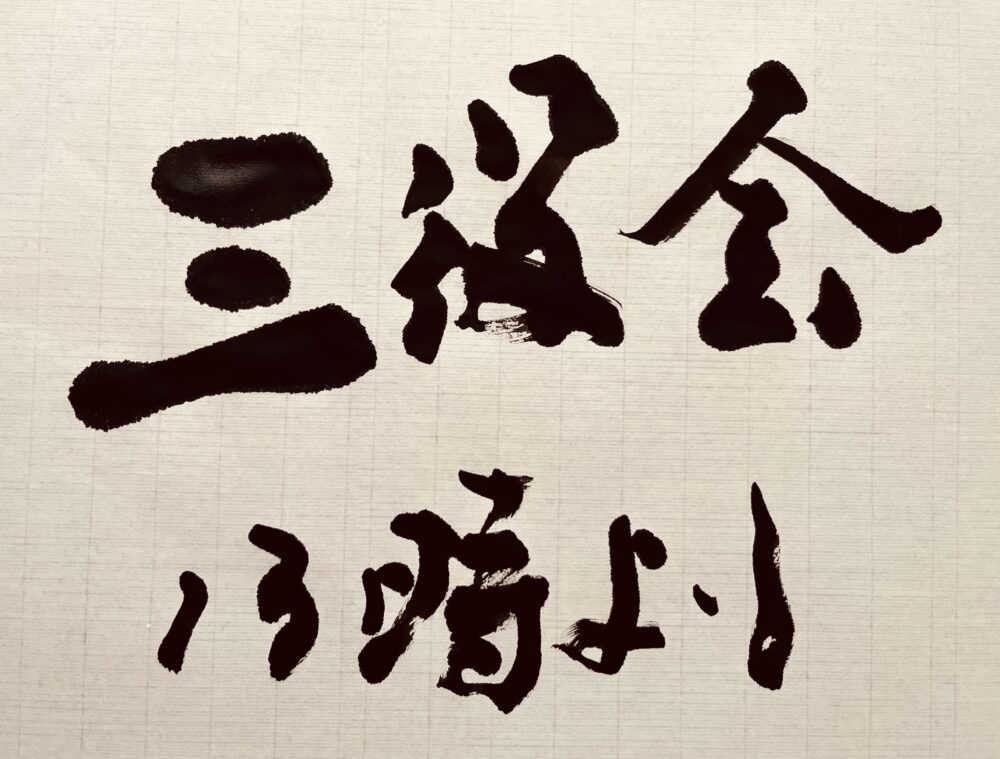 三役会
13時より